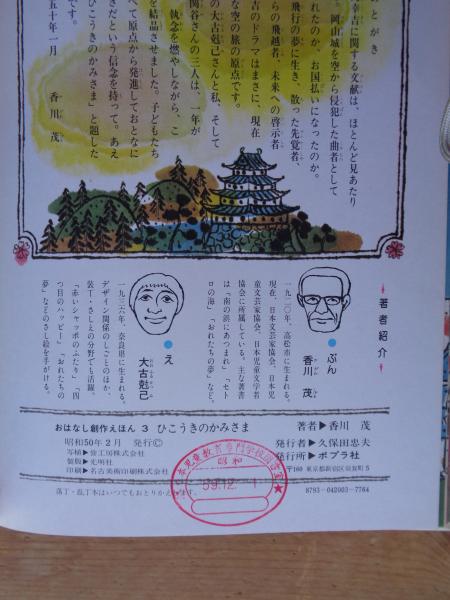 とがき
幸吉に関する文献は、ほとんど見あたり
岡山城を空から侵犯した曲者として
れたのか、お国払いになったのか。
飛行の夢に生き、散った先覚者、
らの飛越者、未来への啓示者
吉のドラマはまさに、現在
な空の旅の原点です。
の大古剋己さんと私、そして
関谷さんの三人は、一年が
執念を燃やしながら、こ
を結晶させました。子どもたち
べて原点から発進しておとなに
きだという信念を持って。あえ
ひこうきのかみさま」と題した
です。
五十年一月
香川 茂
著者紹介
ぶん
香川 茂
一九二〇年、高松市に生まれる。
現在、日本文芸家協会、日本児
童文芸家協会、日本児童文学者
協会に所属している。主な著書
は「南の浜にあつまれ」「セト
ロの海」「おれたちの夢」など。
え
大古剋己
一九三六年、奈良県に生まれる。
デザイン関係のしごとのほか、
装丁・さしえの分野でも活躍。
「赤いシャッポのふたり」「四
つ目のハッピー」「おれたちの
夢」などのさし絵を手がける。
おはなし創作えほん 3 ひこうきのかみさま
著者▶香川 茂
昭和50年2月 発行©
発行者▶久保田忠夫
発行所▶ポプラ社
製版▶光明社
印刷▶名古美術印刷株式会社
〒160 東京都新宿区須賀町5
落丁・乱丁本はいつでもおとりかえします。
8793-042003-7764
昭和
59.12.1